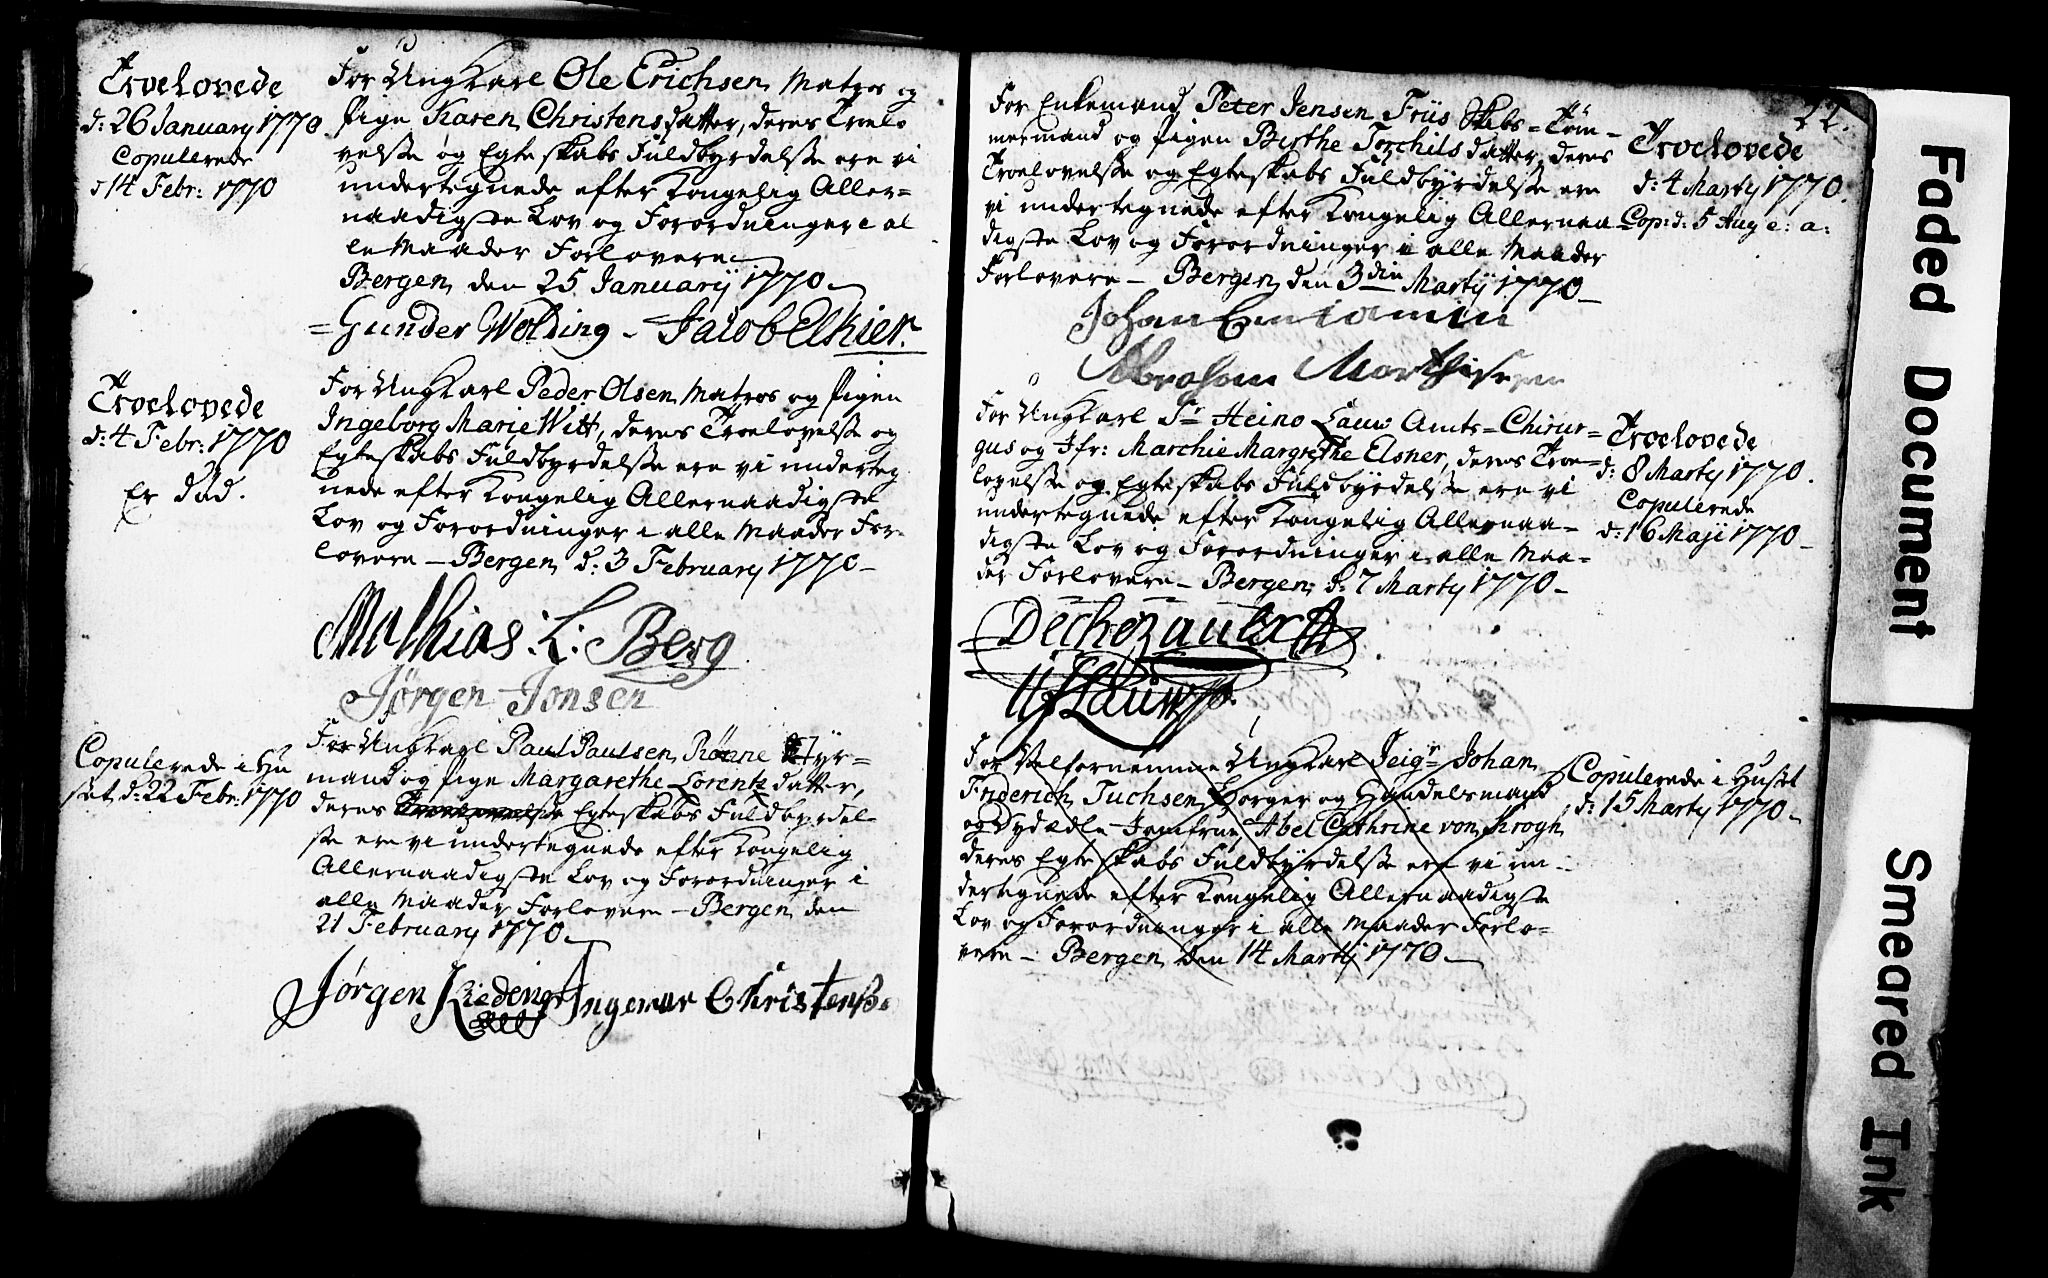 Troelovede
d: 26 January 1770
Copulerede
d 14 Febr: 1770
For Ungkarl Ole Erichsen Matros og
Pige Karen Christensdatter, deres Troelo
velsse og Egteskabs Fuldbyrdelsse ere vi
undertegnede efter Kongelig Aller=
naadigste Lov og Forordninger i al
le Maader Forlovere
Bergen den 25 Januarij 1770
Gunder Wolding - Jacob Elkier.
Troelovede
d: 4 Febr: 1770
Er död.
For Ungkarl Peder Olsen Matros og Pigen
Ingeborg Marie Witt, deres Troelovelsse og
Egteskabs Fuldbyrdelsse ere vi underteg
nede efter Kongelig Allernaadigste
Lov og Forordninger i alle Maader For-
lovere - Bergen d: 3 February 1770 -
Mathias: L: Berg
Jørgen Jonsen
Copulerede i Hu
set d: 22 Febr: 1770
For Ungkarl Paul Paulsen Rönne Styr=
mand og Pige Margarethe Lorentz datter,
deres Troelovelsse Egteskabs Fuldbyrdel
sse ere vi undertegnede efter Kongelig
Allernaadigste Lov og Forordninger i
alle Maader Forlovere - Bergen den
21 February 1770
Jørgen Ingemar Christenss.
22.
For Enkemand Peter Jensen Friis Skibs=Töm-
mermand og Pigen Birthe Torchilsdatter, deres
Troelovelsse og Egteskabs Fuldbyrdelsse ere
vi undertegnede efter Kongelig Allernaa
digste Lov og Forordninger i alle Maader
Forlovere - Bergen den 3din Martij 1770 -
Johan Beniamin
Abraham Marthisen
Troelovede
d: 4 Martij 1770.
Cop: d: 5 Aug e: a:
For Ungkarl Sr Heino Lauw Amts=Chirur=
gus og Jfr: Marchie Margrethe Elsner, deres Troe=
lovelsse og Egteskabs Fuldbyrdelsse ere vi
undertegnede efter Kongelig Allernaa-
digste Lov og Forordninger i alle Maa=
der Forlovere - Bergen d: 7 Martij 1770 -
Dechezaulx
Troelovede
d: 8 Martij 1770.
Copulerede
d: 16 Maji 1770 -
For Velfornemme Ungkarl Seigr Johan
Friderich Tuchsen Borger og Handelsmand
og Dydædle Jomfrue Abel Cathrine von Krogh
deres Egteskabs Fuldbyrdelsse ere vi un-
dertegnede efter Kongelig Allernaadigste
Lov og Forordninger i alle Maader Forlo=
vere - Bergen den 14 Martij 1770 -
Copulerede i Huset
d: 15 Martij 1770 -
Faded Document
Smeared Ink